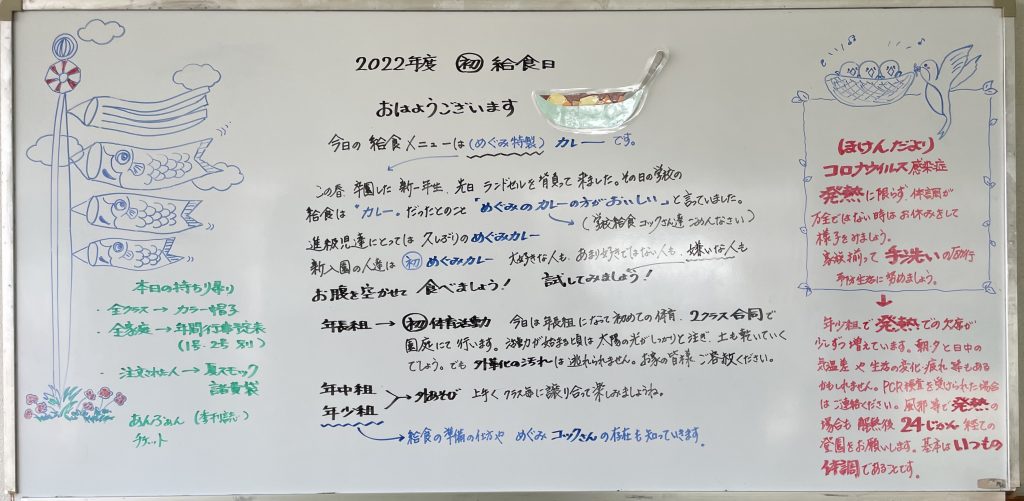 2022年度 ㊗初 給食日
おはようございます
今日の 給食メニューは (めぐみ特製) カレー です。
この春、卒園した 新一年生、先日 ランドセルを 背負って 来ました。その日の学校の
給食は "カレー"だったとのこと 「めぐみのカレーの方がおいしい」と言っていました。
(学校給食コックさん達 ごめんなさい)
進級児達にとっては 久しぶりの めぐみカレー
新入園の人達は 初 めぐみカレー 大好きな人も、あまり好きではない人も、嫌いな人も
お腹を空かせて 食べましょう! 試してみましょう!
年長組 → 初 体育活動 今日は年長組になって初めての体育、2クラス合同で
園庭にて行います。活動が始まる頃は 太陽の光がしっかりと注ぎ、土も乾いていく
でしょう。でも 外靴の汚れは 逃れられません。お家の皆様 ご容赦ください。
年中組
年少組 > 外あそび 上手く クラス毎に譲り合って楽しみましょうね。
→ 給食の準備の仕方や めぐみ コックさん の存在も知っていきます。
本日の持ち帰り
・全クラス → カラー帽子
・全家庭 → 年間行事予定表
(1号・2号 別)
・注文された人 → 夏スモック
諸費袋
あんふぁん (季刊誌)
チケット
ほけんだより
コロナウイルス感染症
発熱に限らず、体調が
万全ではない時はお休みをして
様子をみましょう。
家族揃って 手洗いの励行
予防生活に努めましょう。
↓
年少組で 発熱での欠席が
少しずつ増えています。朝夕と日中の
気温差や 生活の変化・疲れ 等もある
かもしれません。PCR検査を受けられた場合
はご連絡ください。風邪等で発熱の
場合も 解熱後、24じかん 経ての
登園をお願いします。基本はいつもの
体調であることです。